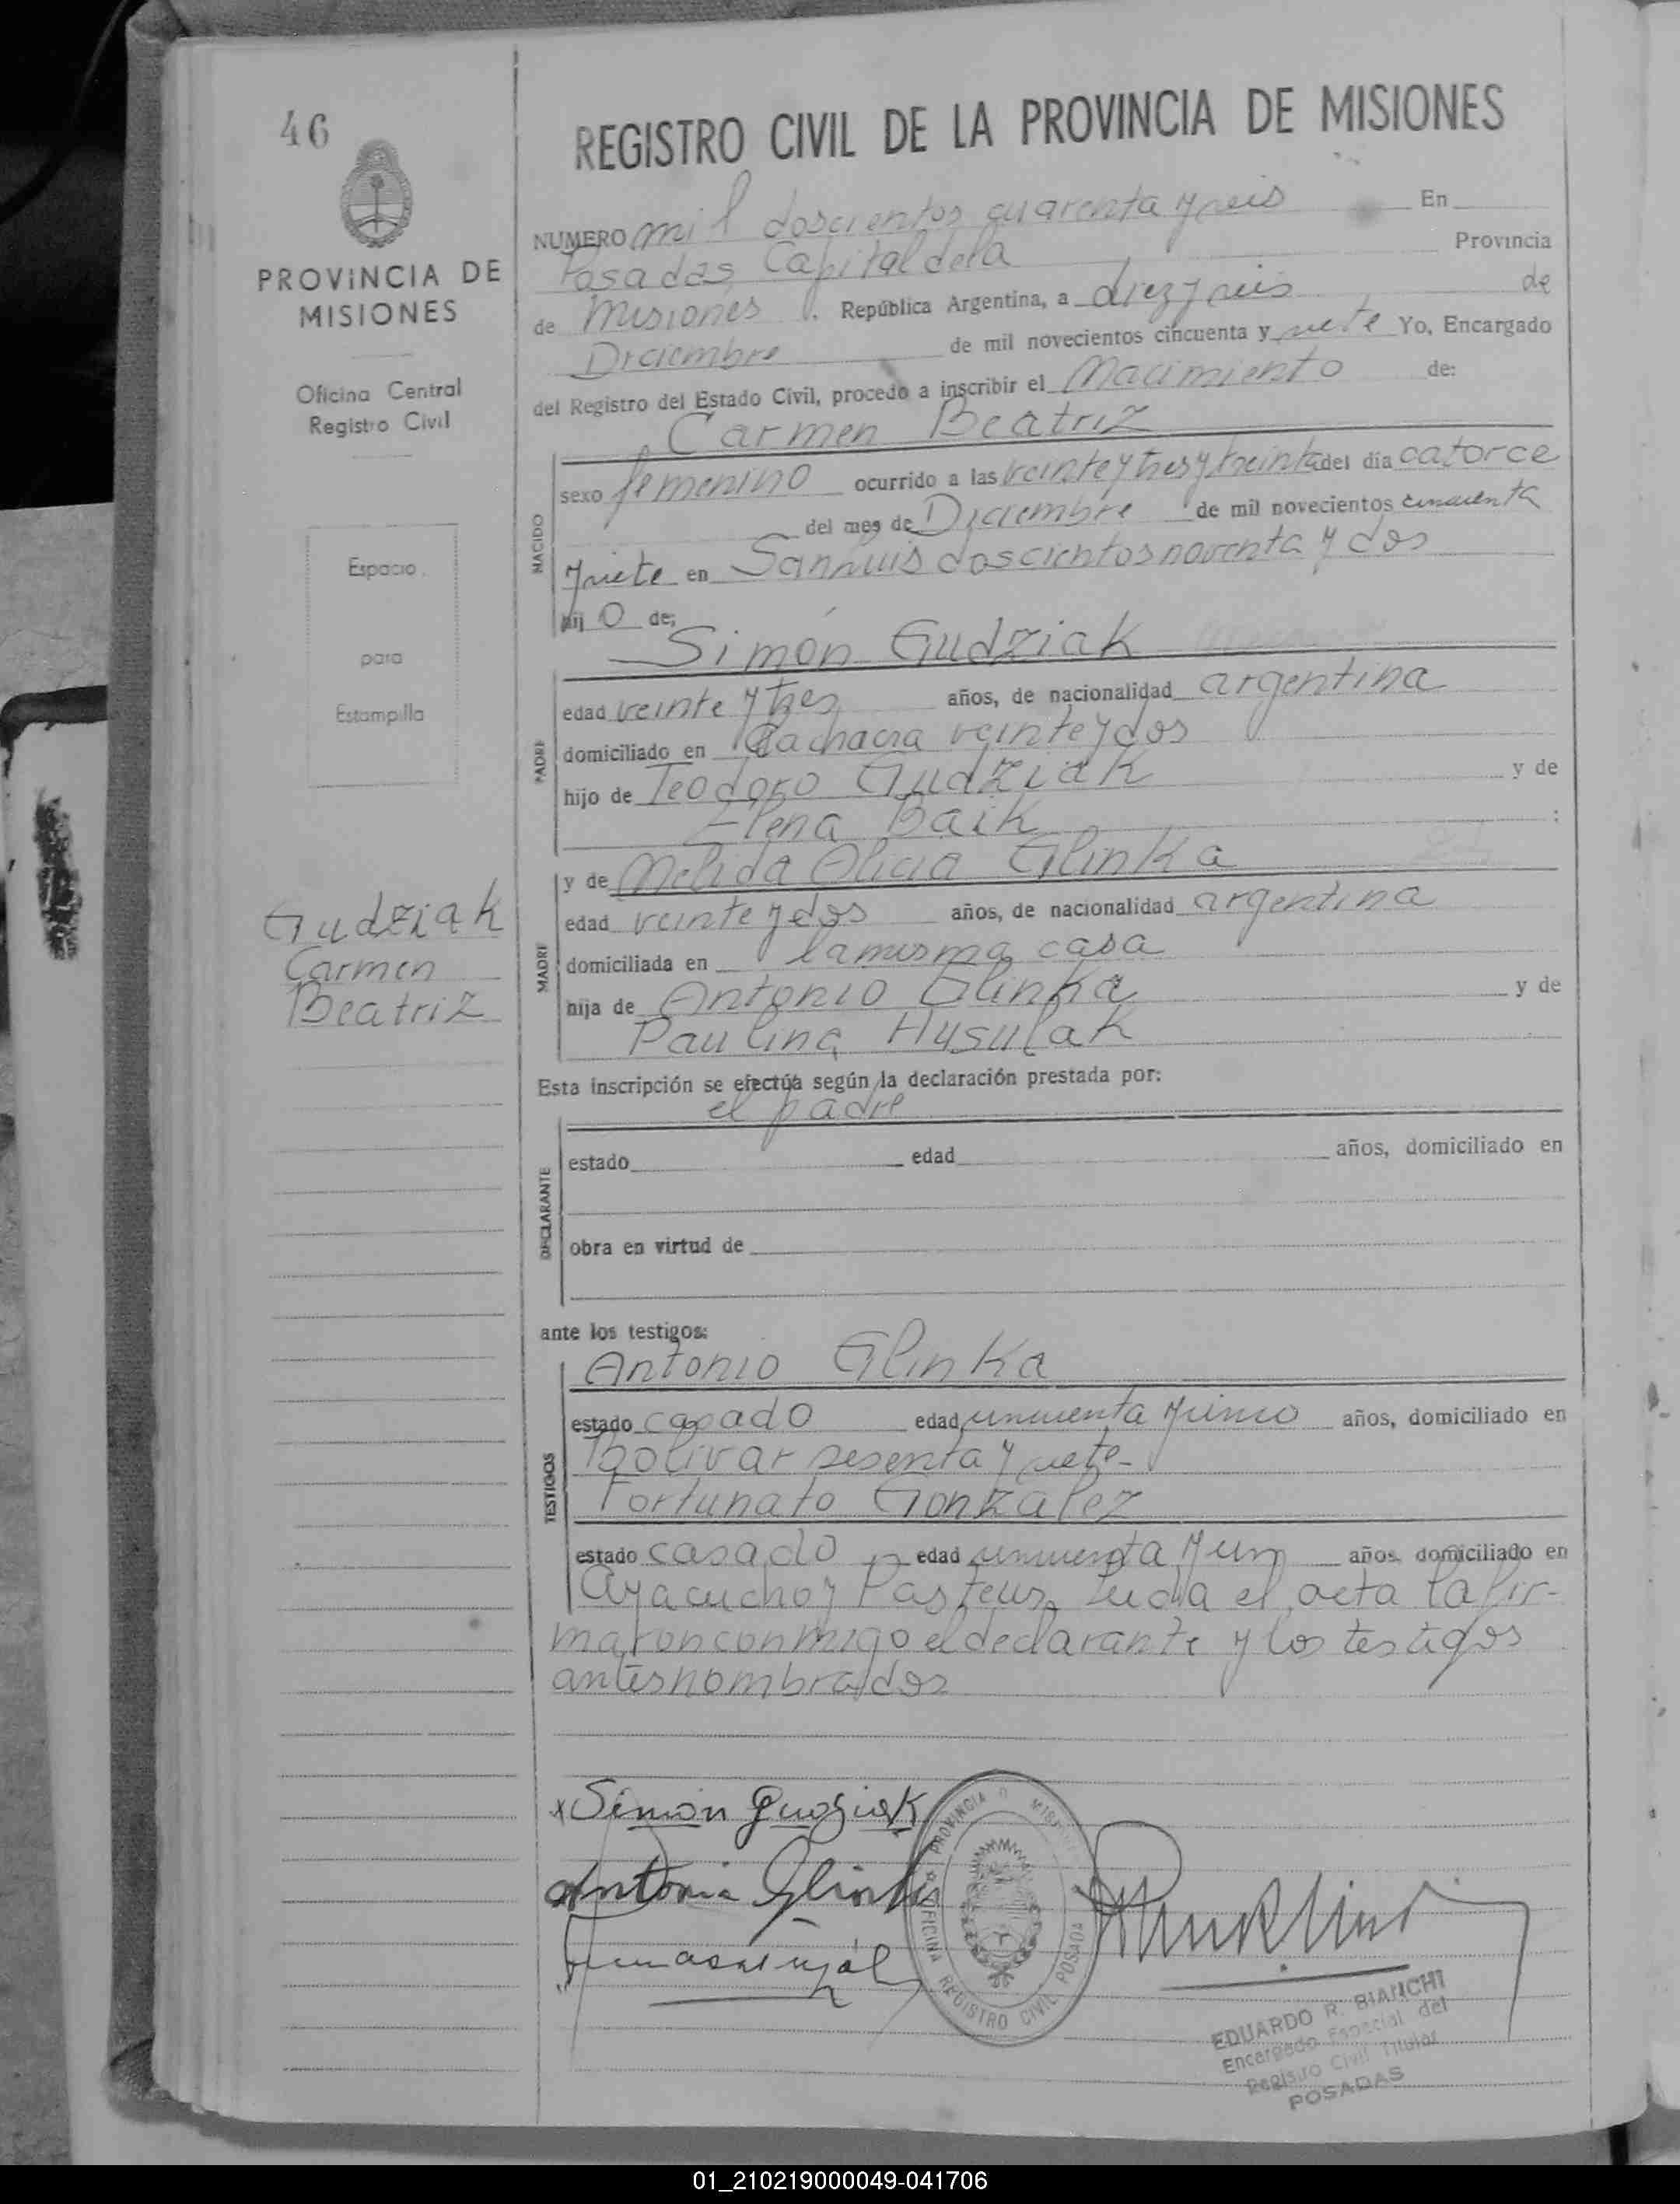 46
PROVINCIA DE
MISIONES
Oficina Central
Registro Civil
Espacio
para
Estampilla
Gudziak
Carmen
Beatriz
REGISTRO CIVIL DE LA PROVINCIA DE MISIONES
NUMERO mil doscientos cuarenta y seis En
Posadas Capital de la Provincia
de Misiones . República Argentina, a diez y seis de
Diciembre de mil novecientos cincuenta y siete Yo, Encargado
del Registro del Estado Civil, procedo a inscribir el Nacimiento de:
Carmen Beatriz
NACIDO
sexo femenino ocurrido a las veinte y tres y treinta del día catorce
del mes de Diciembre de mil novecientos cincuenta
y siete en San Luis doscientos noventa y dos
hij o de;
Simón Gudziak
PADRE
edad veinte y tres años, de nacionalidad argentina
domiciliado en Chacra veinte y dos
hijo de Teodoro Gudziak y de
Elena Baik :
MADRE
y de Nelida Olicia Glinka
edad veinte y dos años, de nacionalidad argentina
domiciliada en la misma casa
hija de Antonio Glinka y de
Paulina Husulak
Esta inscripción se efectúa según la declaración prestada por:
el padre
DECLARANTE
estado edad años, domiciliado en
obra en virtud de
ante los testigos:
Antonio Glinka
TESTIGOS
estado casado edad cincuenta y cinco años, domiciliado en
Bolivar sesenta y siete-
Fortunato Gonzalez
estado casado edad cincuenta y un años, domiciliado en
Ayacucho y Pasteur. Leida el acta la fir-
maron conmigo el declarante y los testigos
antes nombrados
x Simón Gudziak
Antonio Glinka
PROVINCIA D MISI
OFICINA REGISTRO CIVIL POSADA
EDUARDO R. BIANCHI
Encargado Especial del
Registro Civil Titular
POSADAS
01_210219000049-041706